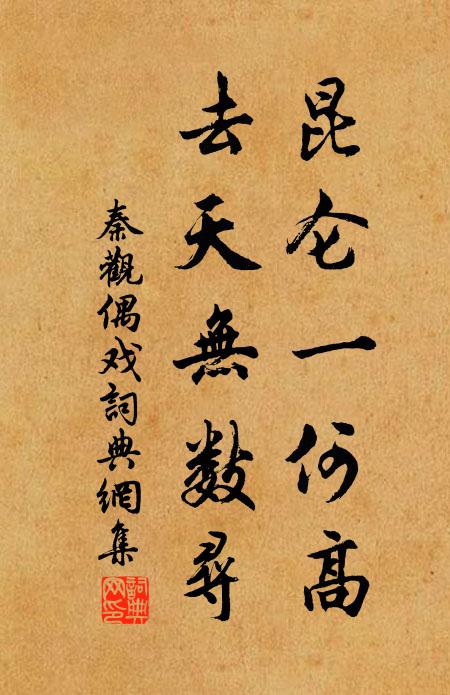 昆仑一何高
去天無數尋
秦觀偶戏詞典網集
詞典網印